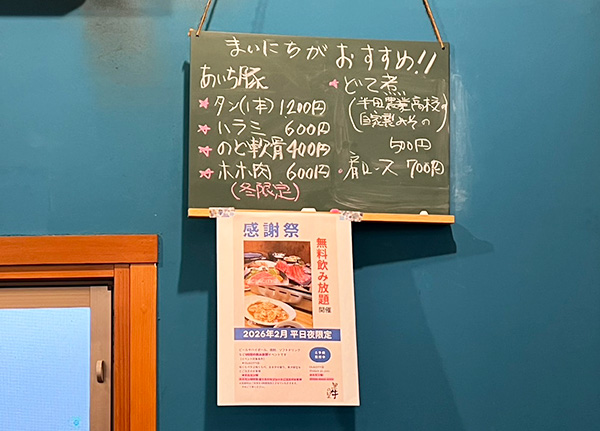 まいにちが おすすめ!!
あいち豚
★ タン(1本) 1200円
★ ハラミ 600円
★ のど軟骨 400円
★ ホホ肉 600円
(冬限定)
★ どて煮
(半田農業高校の
自家製みその)
500円
・肩ロース 700円
感謝祭
無料飲み放題
開催
2026年2月 平日夜限定